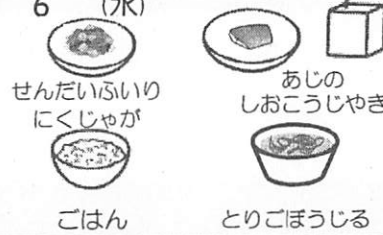 6 (水)
せんだいふいり
にくじゃが
あじの
しおこうじやき
ごはん
とりごぼうじる